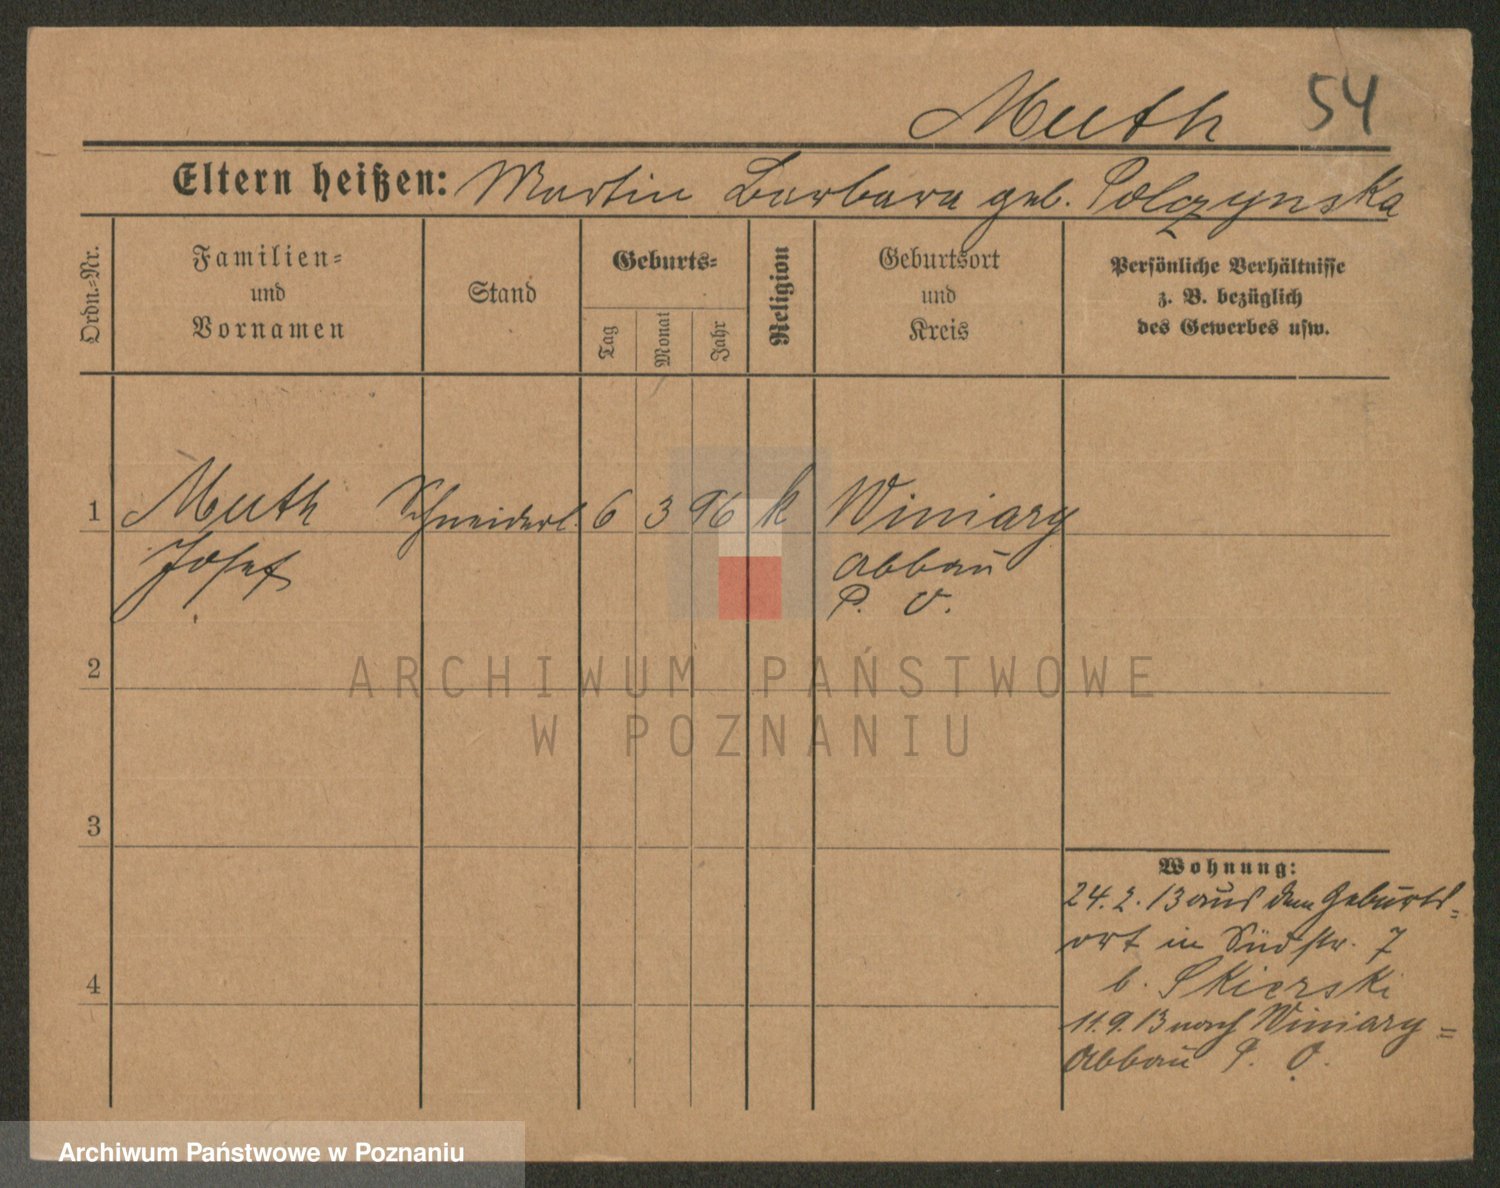 Muth 54
Eltern heißen: Martin Barbara geb. Polczynska
Ordn.-Nr.
Familien-
und
Vornamen
Stand
Geburts-
Tag
Monat
Jahr
Religion
Geburtsort
und
Kreis
Persönliche Verhältnisse
z. B. bezüglich
des Gewerbes usw.
1 Muth Schneiderl. 6 3 96 k Winiary
Josef Abbau
P. O.
2
ARCHIWUM PAŃSTWOWE
W POZNANIU
3
Wohnung:
24. 2. 13 aus dem Geburts-
ort in Südstr. 7
b. Skierski
4
11. 9. 13 nach Winiary=
Abbau P. O.
Archiwum Państwowe w Poznaniu